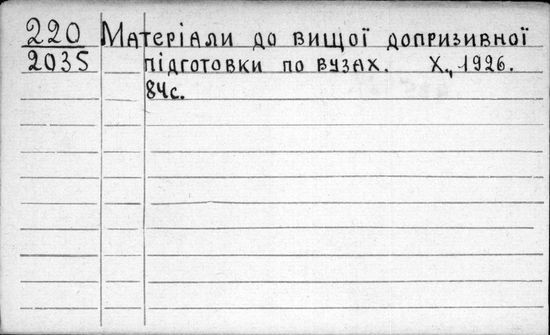 220 Матеріали до вищої допризивної
2035 підготовки по вузах. Х., 1926.
84с.